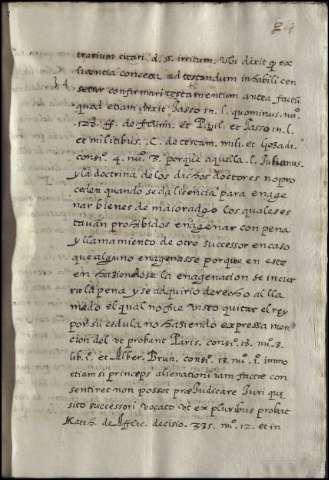 trarium citari. d. §. irritum. Ubi dixit q ex
licentia concessa ad testandum inhabili cen
setur confirmari testamentum antea factū
quod etiam dixit Jasso in. l. quominus. nu.
120. ff. de flum. et Paul. et Jasso in. l.
et militibus. C. de testam. mili. et Gozad.
cons. 4. nu. 8. porque aquella. l.
y la doctrina de los dichos doctores no pro
ceden quando se da licencia para enage
nar bienes de maioradgo los quales es
tavan prohibidos enagenar con pena
y llamamiento de otro successor en caso
que alguno enagenasse porque en este
en haziendose la enagenacion se incur
rio la pena y se adquirio derecho al lla
mado el qual no fue visto quitar el rey
por su cedula no haziendo expressa men
cion del ut probant Paris. consi. 13. nu. 8.
lib. 1. et Alber. Brun. consi. 13. nu. 1. immo
etiam si princeps alienationi iam factae con
sentiret non posset praeiudicare Juri que
sito successori vocato ut ex pluribus probat
Matt. de Afflic. decisio. 335. nu. 12. et in